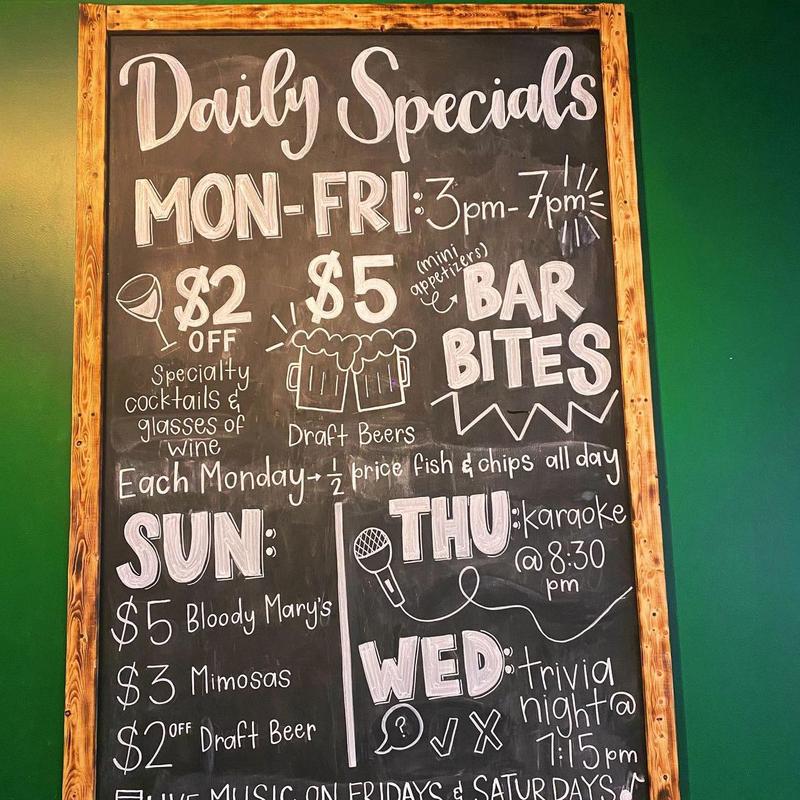 Daily Specials
MON-FRI: 3pm-7pm
$2
OFF
Specialty
cocktails &
glasses of
wine
$5
Draft Beers
(mini
appetizers)
BAR
BITES
Each Monday → 1/2 price fish & chips all day
SUN:
$5 Bloody Mary's
$3 Mimosas
$2 OFF Draft Beer
THU: karaoke
@ 8:30
pm
WED: trivia
night @
7:15pm
?
LIVE MUSIC ON FRIDAYS & SATURDAYS